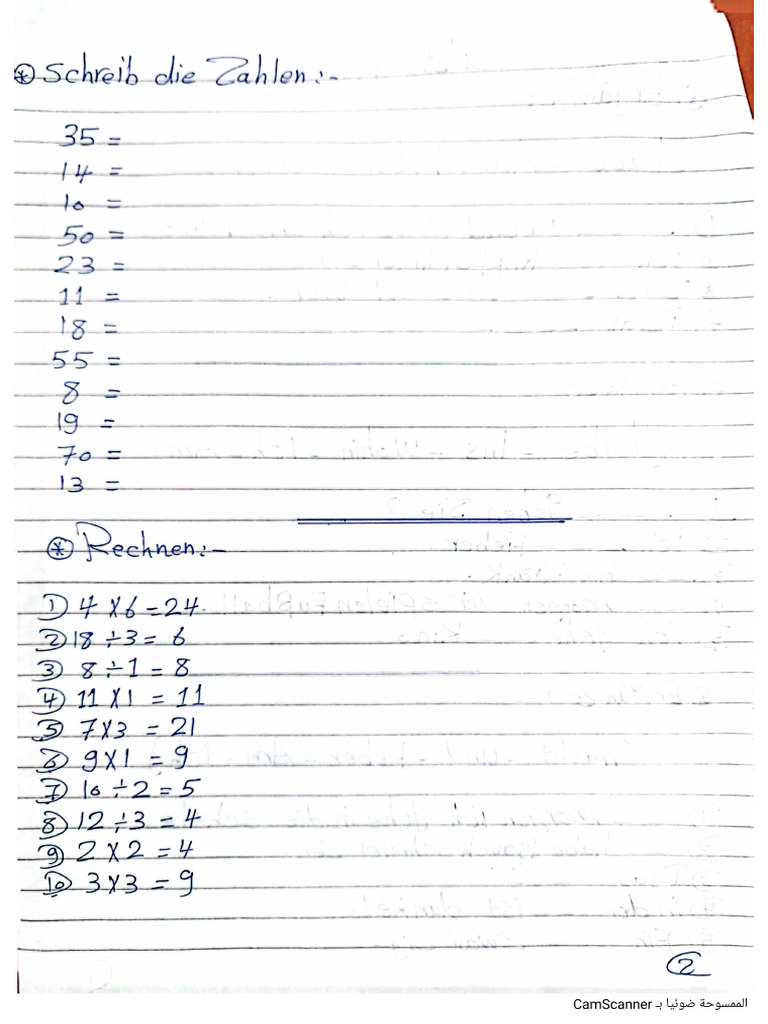 * Schreib die Zahlen:-
35 =
14 =
10 =
50 =
23 =
11 =
18 =
55 =
8 =
19 =
70 =
13 =
* Rechnen:-
1) 4 x 6 = 24.
2) 18 ÷ 3 = 6
3) 8 ÷ 1 = 8
4) 11 x 1 = 11
5) 7 x 3 = 21
6) 9 x 1 = 9
7) 10 ÷ 2 = 5
8) 12 ÷ 3 = 4
9) 2 x 2 = 4
10) 3 x 3 = 9
2
الممسوحة ضوئيا بـ CamScanner